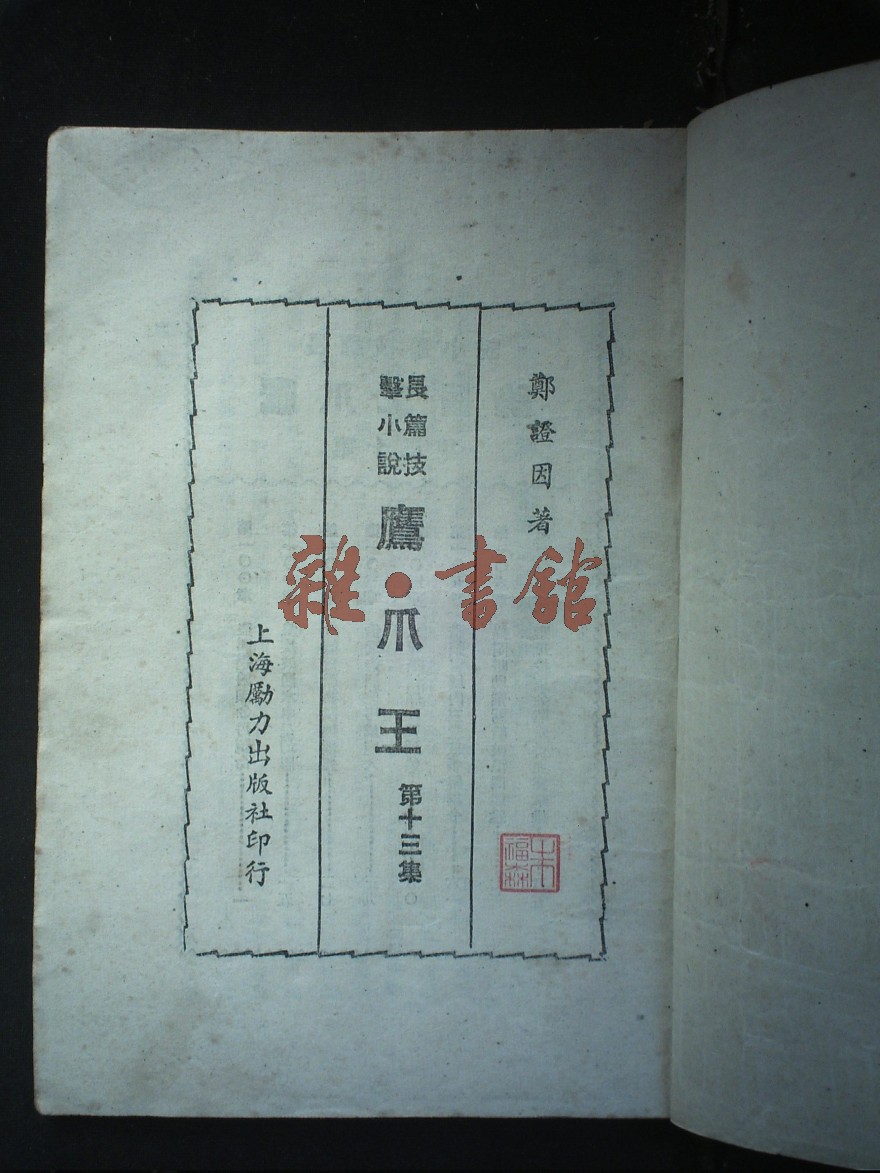 鄭證因著
長篇技
擊小說
鷹爪王
第十三集
上海勵力出版社印行
雜·書館